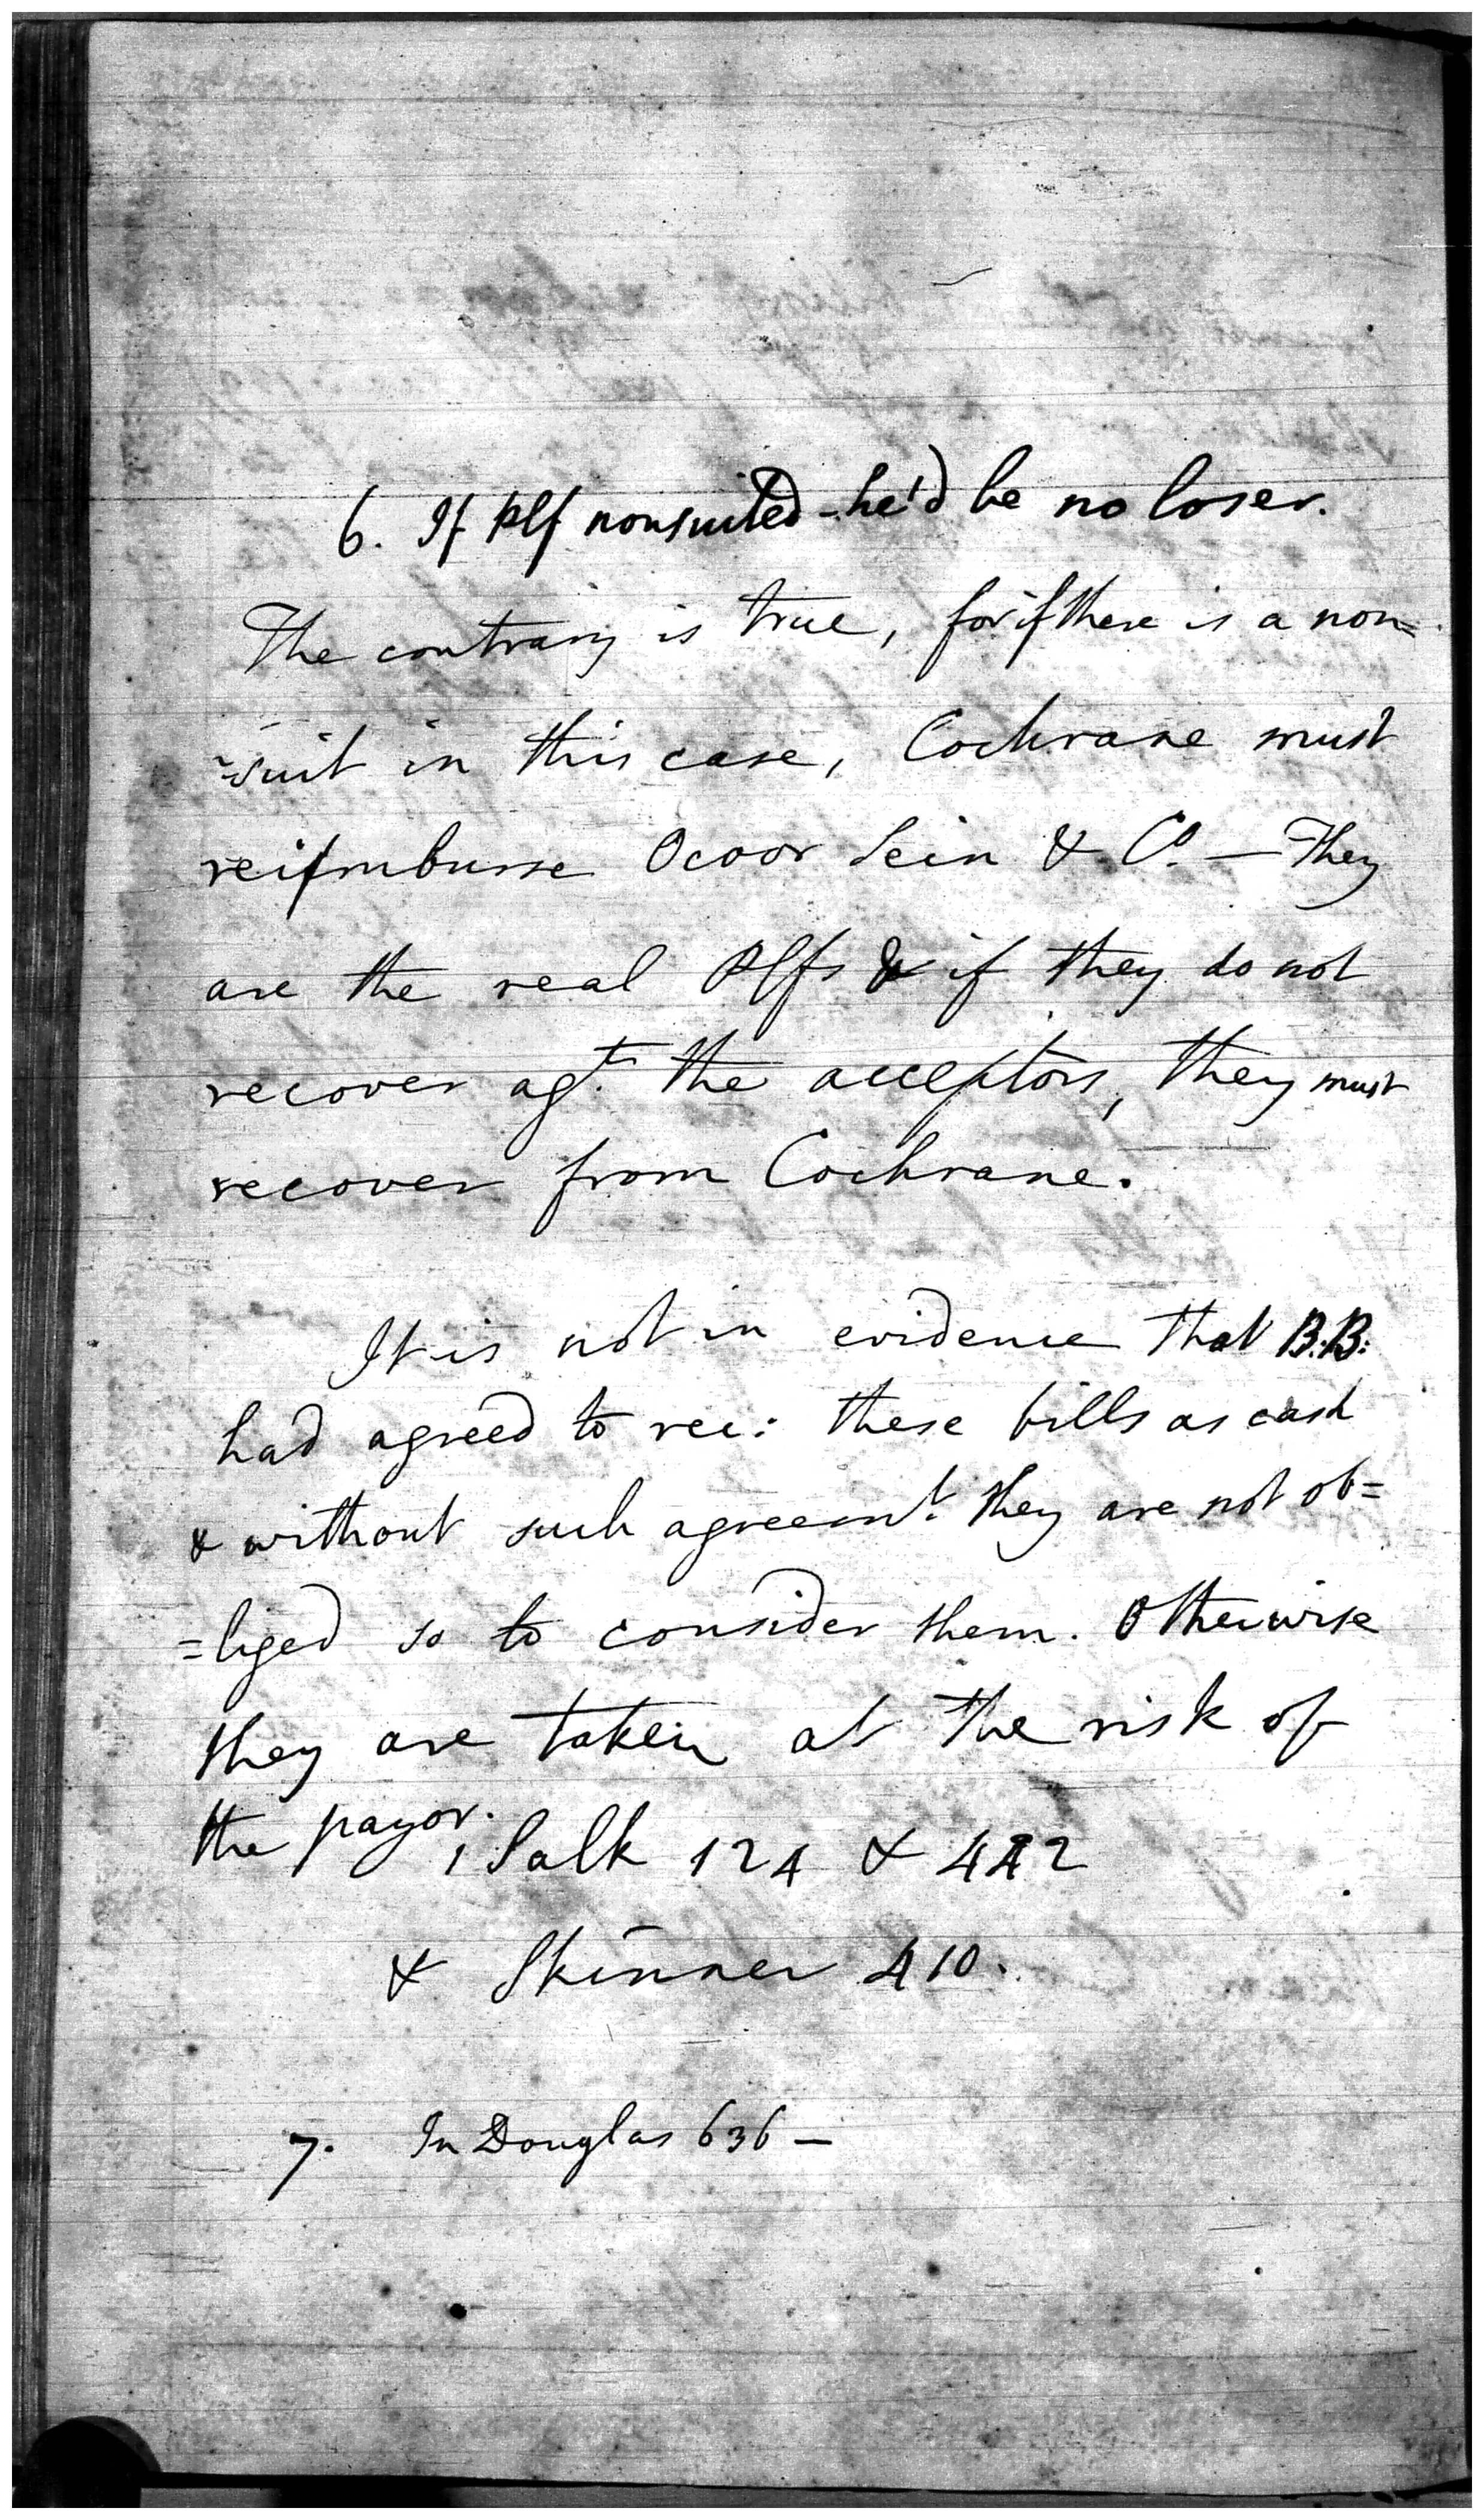 6. If Plf nonsuited - he'd be no loser.
The contrary is true, for if there is a non=
=suit in this case, Cochrane must
reimburse Ocoor Sein & Co. — They
are the real Plfs & if they do not
recover agt. the acceptors, they must
recover from Cochrane.
It is not in evidence that B.B:
had agreed to rec: these bills as cash
& without such agreemt. they are not ob=
=liged so to consider them. Otherwise
they are taken at the risk of
the payor. 1 Salk 124 & 442
& Skinner 410.
7. In Douglas 636 —